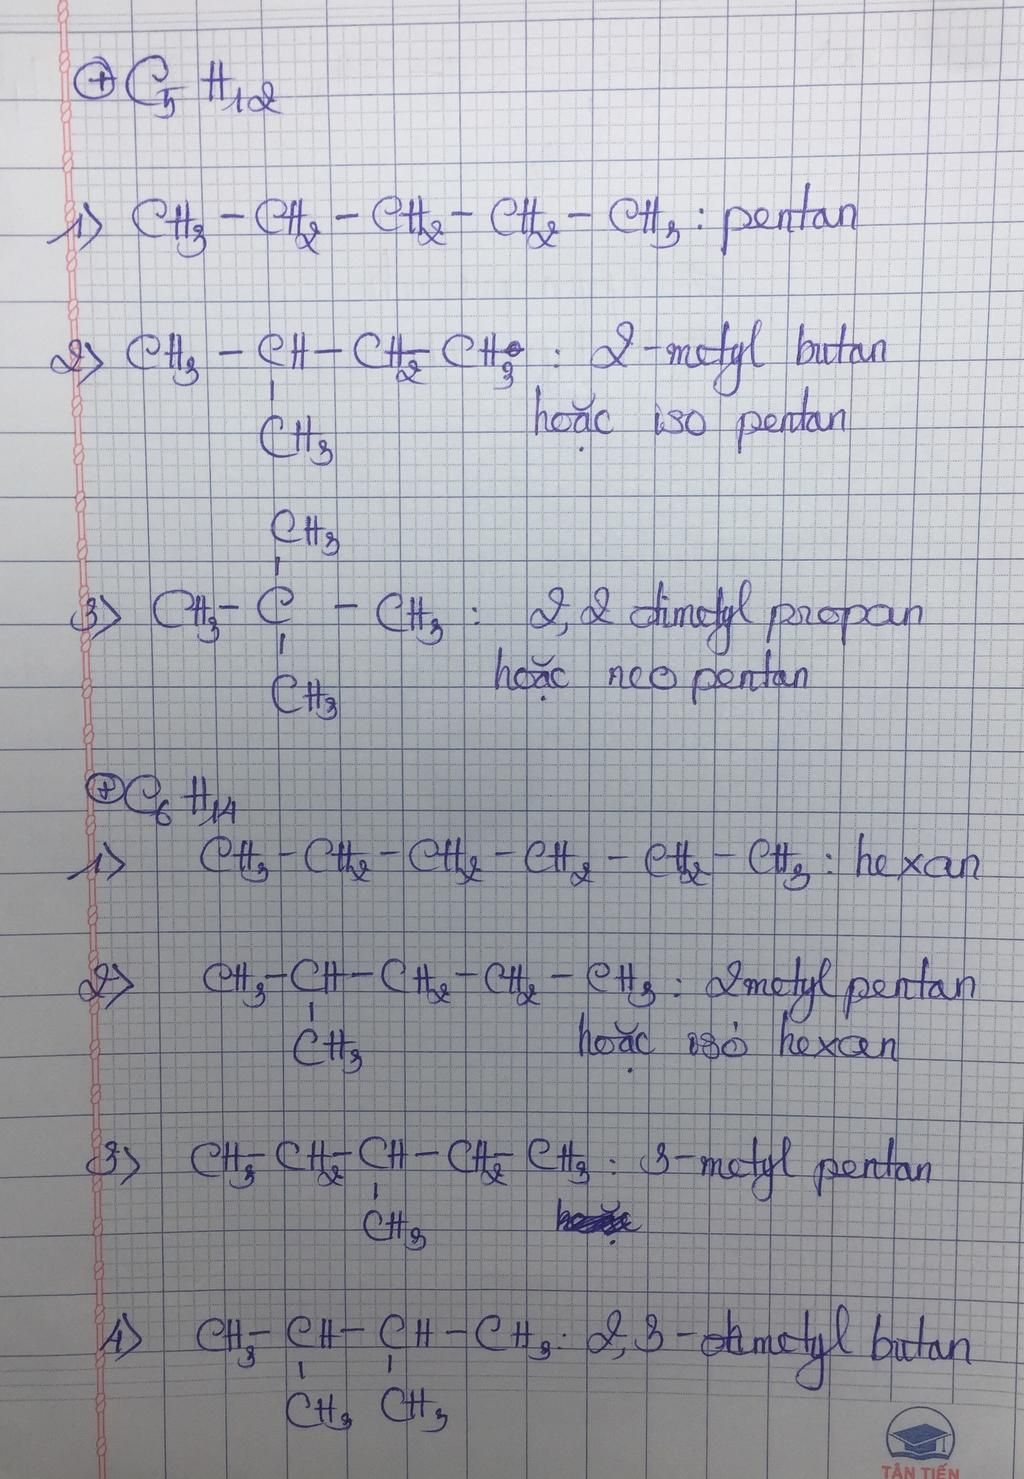 ⊕ C5H12
1) CH3 - CH2 - CH2 - CH2 - CH3 : pentan
2) CH3 - CH - CH2 - CH3 : 2-metyl butan
CH3 hoặc iso pentan
CH3
3) CH3 - C - CH3 : 2,2 dimetyl propan
CH3 hoặc neo pentan
⊕ C6H14
1) CH3 - CH2 - CH2 - CH2 - CH2 - CH3 : hexan
2) CH3 - CH - CH2 - CH2 - CH3 : 2metyl pentan
CH3 hoặc iso hexan
3) CH3 - CH2 - CH - CH2 - CH3 : 3-metyl pentan
CH3
4) CH3 - CH - CH - CH3 : 2,3-dimetyl butan
CH3 CH3
TÂN TIẾN